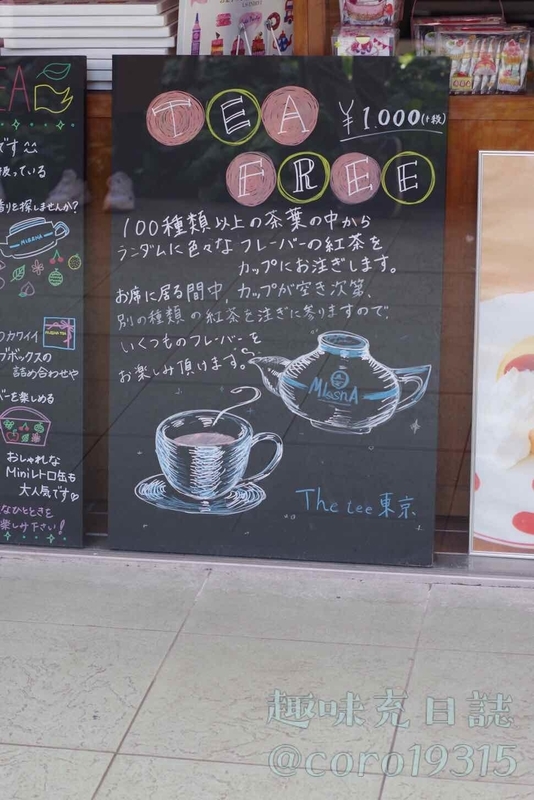 TEA
¥1.000(+税)
FREE
100種類以上の茶葉の中から
ランダムに色々なフレーバーの紅茶を
カップにお注ぎします。
お席に居る間中、カップが空き次第、
別の種類の紅茶を注ぎに参りますので、
いくつものフレーバーを
お楽しみ頂けます。
MlesnA
The tee 東京
EA
です
扱っている
香りを探しませんか?
MlesnA
カワイイ
ブボックスの
詰め合わせや
バーを楽しめる
おしゃれな
Miniレトロ缶も
大人気です♡
なひとときを
楽しみ下さい!
趣味充日誌
@coro19315